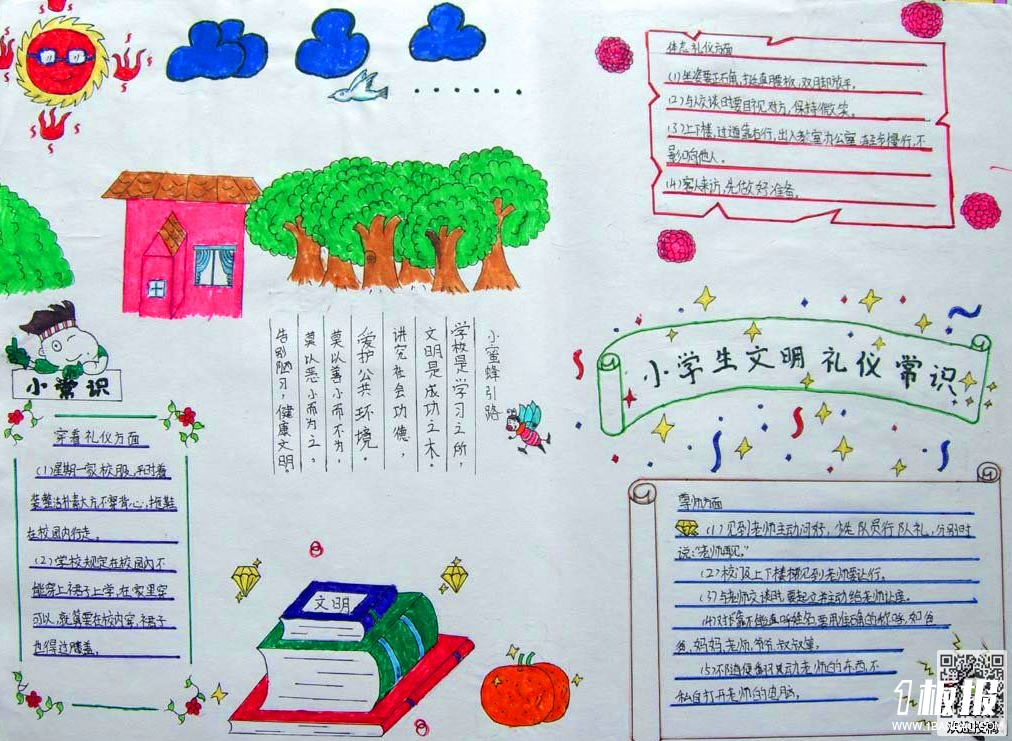 小学生文明礼仪常识
体态礼仪方面
(2)与人交谈时要目视对方,保持微笑。
(3)上下楼,过道靠右行,出入教室办公室
影响他人。
(4)客人来访,先做好准备。
小蜜蜂引路
学校是学习之所,
文明是成功之本。
讲究社会功德,
爱护公共环境。
莫以善小而不为,
莫以恶小而为之,
告别陋习,健康文明。
小常识
穿着礼仪方面
(1)星期一家校服,平时着
装整洁朴素大方不穿背心,拖鞋
在校园内行走。
(2)学校规定在校园内不
能穿上裙子上学,在家里穿
可以,就算要在校内穿,裙子
也得过膝盖。
文明
尊师方面
(1)见到老师主动问好,少先队员行队礼,分别时
说:“老师再见。”
(2)校门及上下楼梯见到老师要让行。
(3)与老师交谈时,要起立并主动给老师让座。
爸,妈妈,老师,爷爷,叔叔等。
(5)不随便翻动老师的东西,不
私自打开老师的电脑。
1板报
欢迎投稿